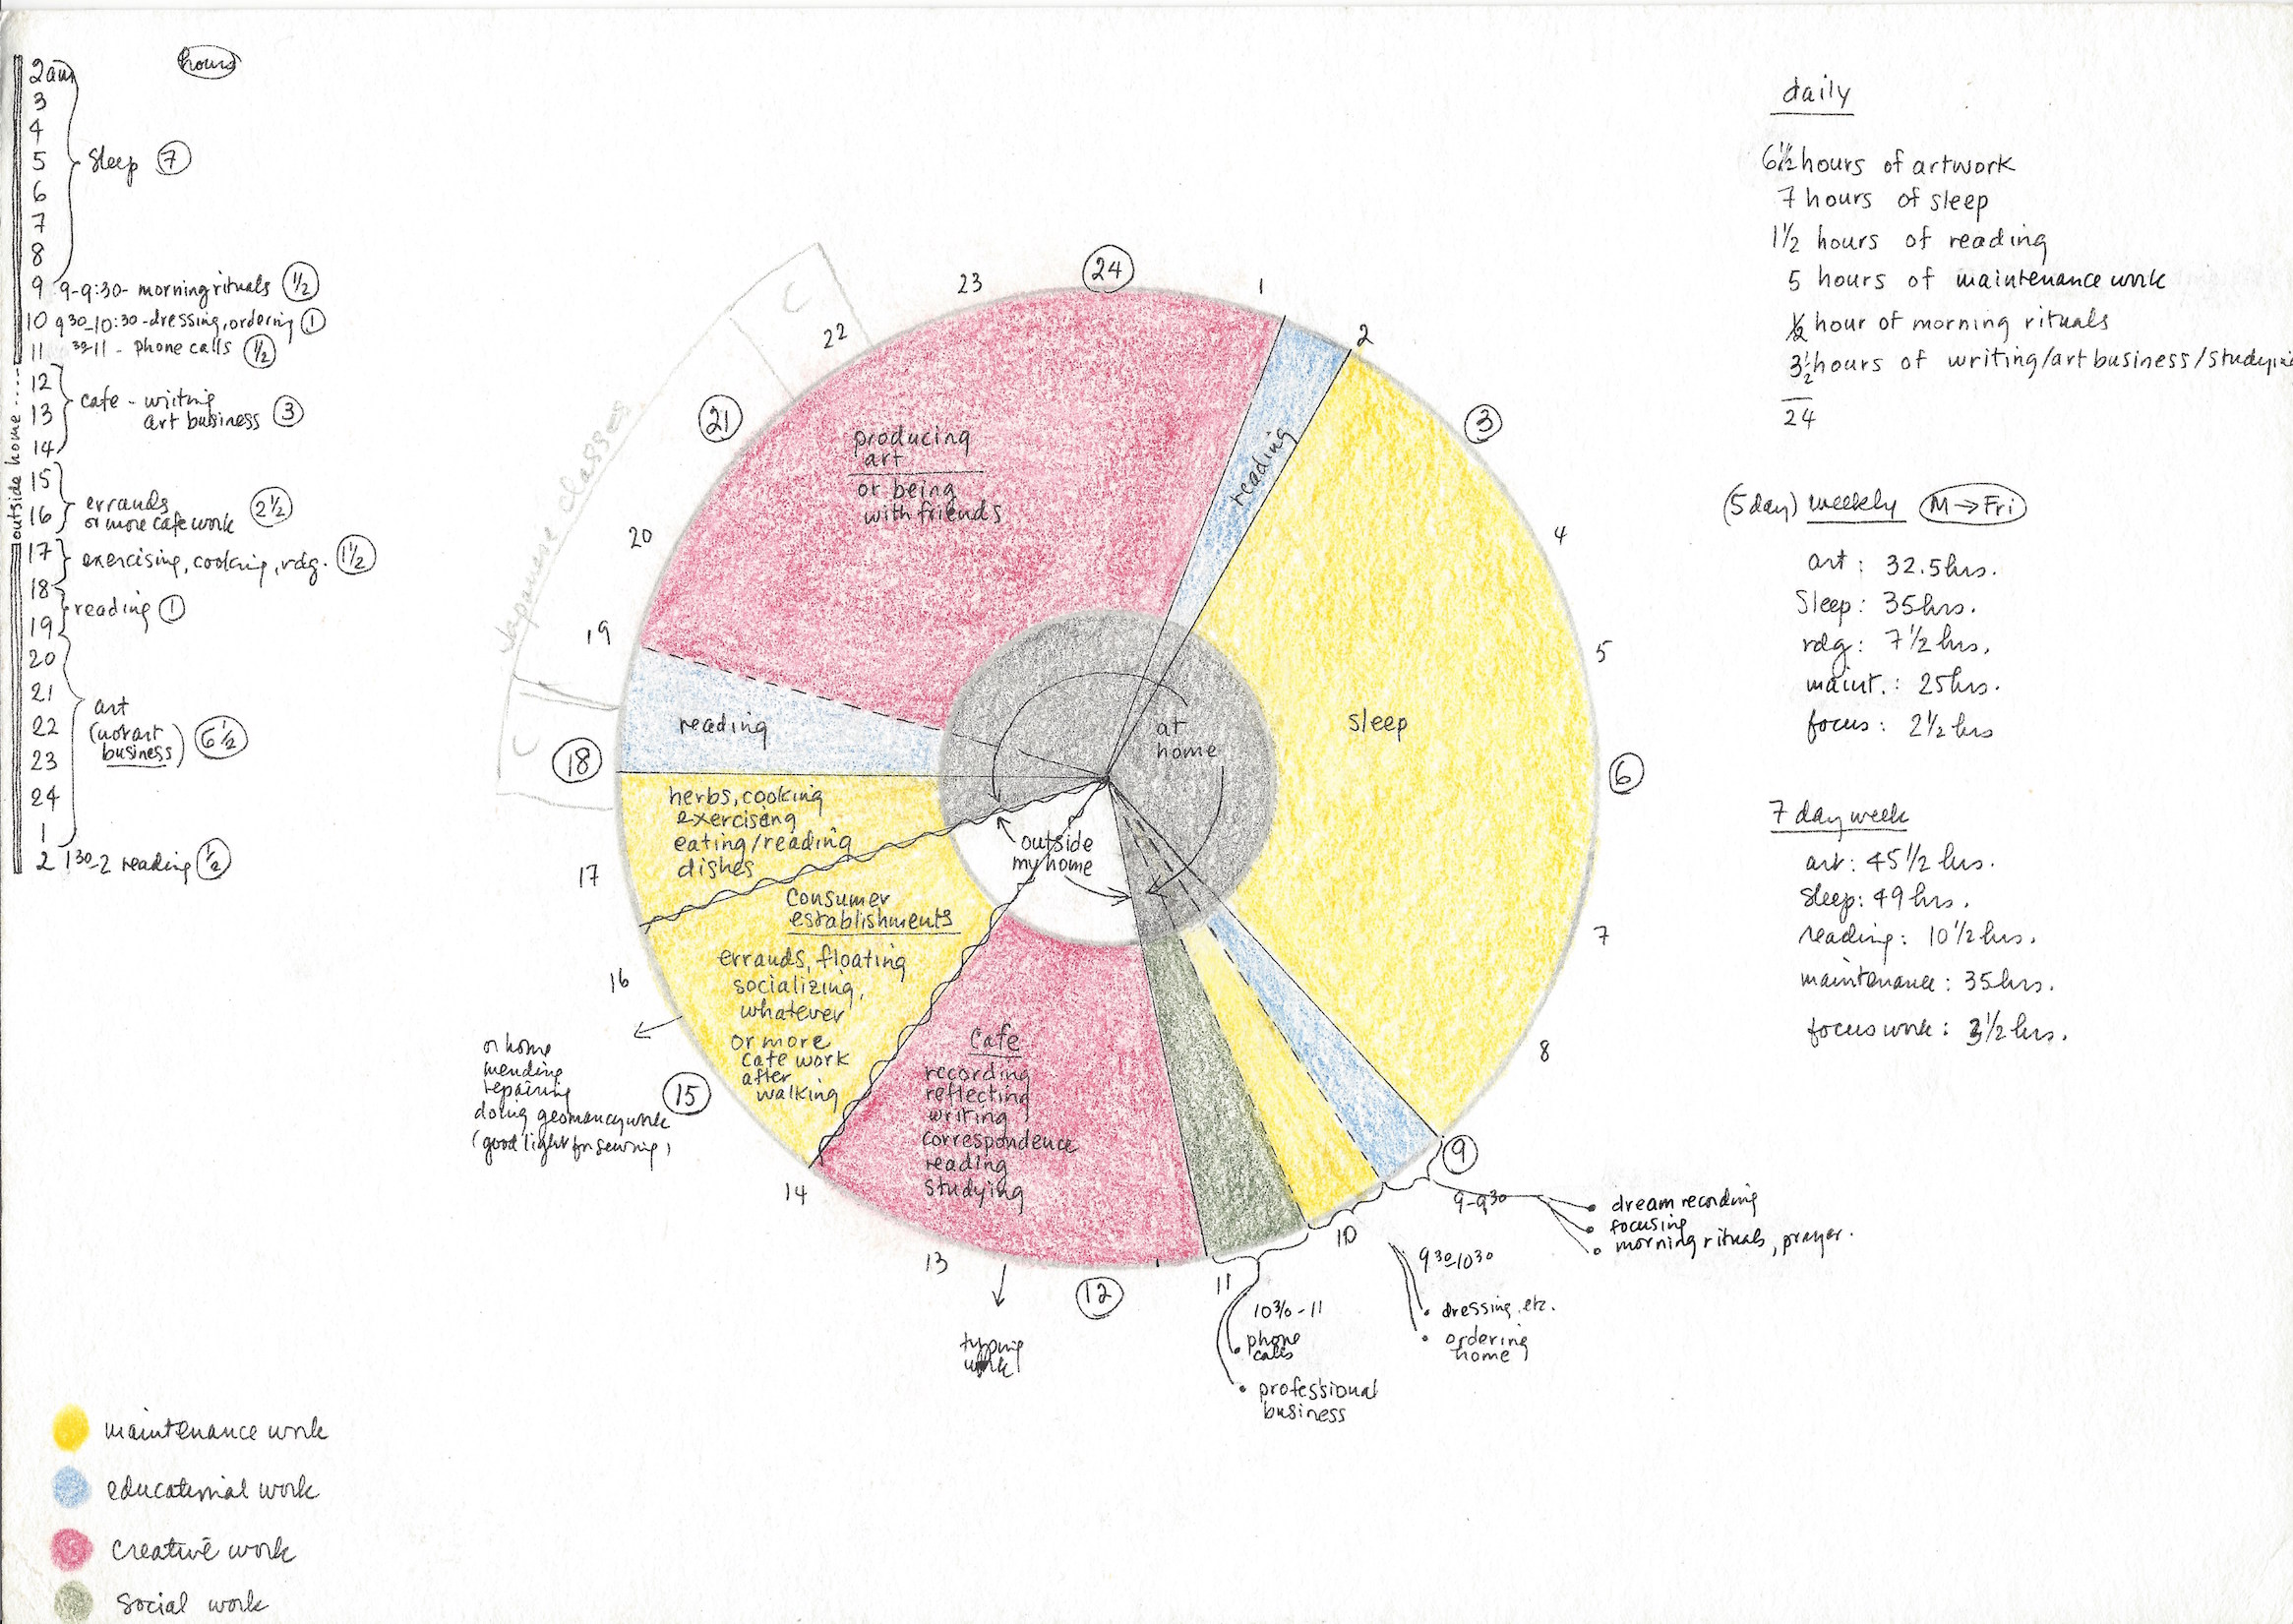 hours
2am
3
4
5
6
7
8
Sleep 7
9 9-9:30- morning rituals 1/2
10 9 30-10:30-dressing, ordering 1
11 30-11 - phone calls 1/2
12
13
14
cafe - writing
art business 3
outside home
15
16
errands
or more cafe work 2 1/2
17
exercising, cooking, rdg. 1 1/2
18
reading 1
19
20
21
22
23
24
1
art
(not art
business) 6 1/2
2 1 30-2 reading 1/2
maintenance work
educational work
creative work
social work
24
1
2
3
4
5
6
7
8
9
10
11
12
13
14
15
16
17
18
19
20
21
22
23
Japanese classes
C
C
producing
art
or being
with friends
reading
sleep
reading
at
home
outside
my home
herbs, cooking
exercising
eating/reading
dishes
Consumer
establishments
errands, floating
socializing,
whatever
or more
cafe work
after
walking
Cafe
recording
reflecting
writing
correspondence
reading
studying
or home
mending
repairing
doing geomancy work
(good light for sewing)
typing
work
10 30-11
phone
calls
professional
business
9 30-10 30
dressing, etc.
ordering
home
9-9 30
dream recording
focusing
morning rituals, prayer.
daily
6 1/2 hours of artwork
7 hours of sleep
1 1/2 hours of reading
5 hours of maintenance work
1/2 hour of morning rituals
3 1/2 hours of writing/art business/studyin
24
(5 day) weekly M→Fri
art: 32.5 hrs.
Sleep: 35 hrs.
rdg: 7 1/2 hrs.
maint.: 25 hrs.
focus: 2 1/2 hrs
7 day week
art: 45 1/2 hrs.
Sleep: 49 hrs.
reading: 10 1/2 hrs.
maintenance: 35 hrs.
focus work: 3 1/2 hrs.